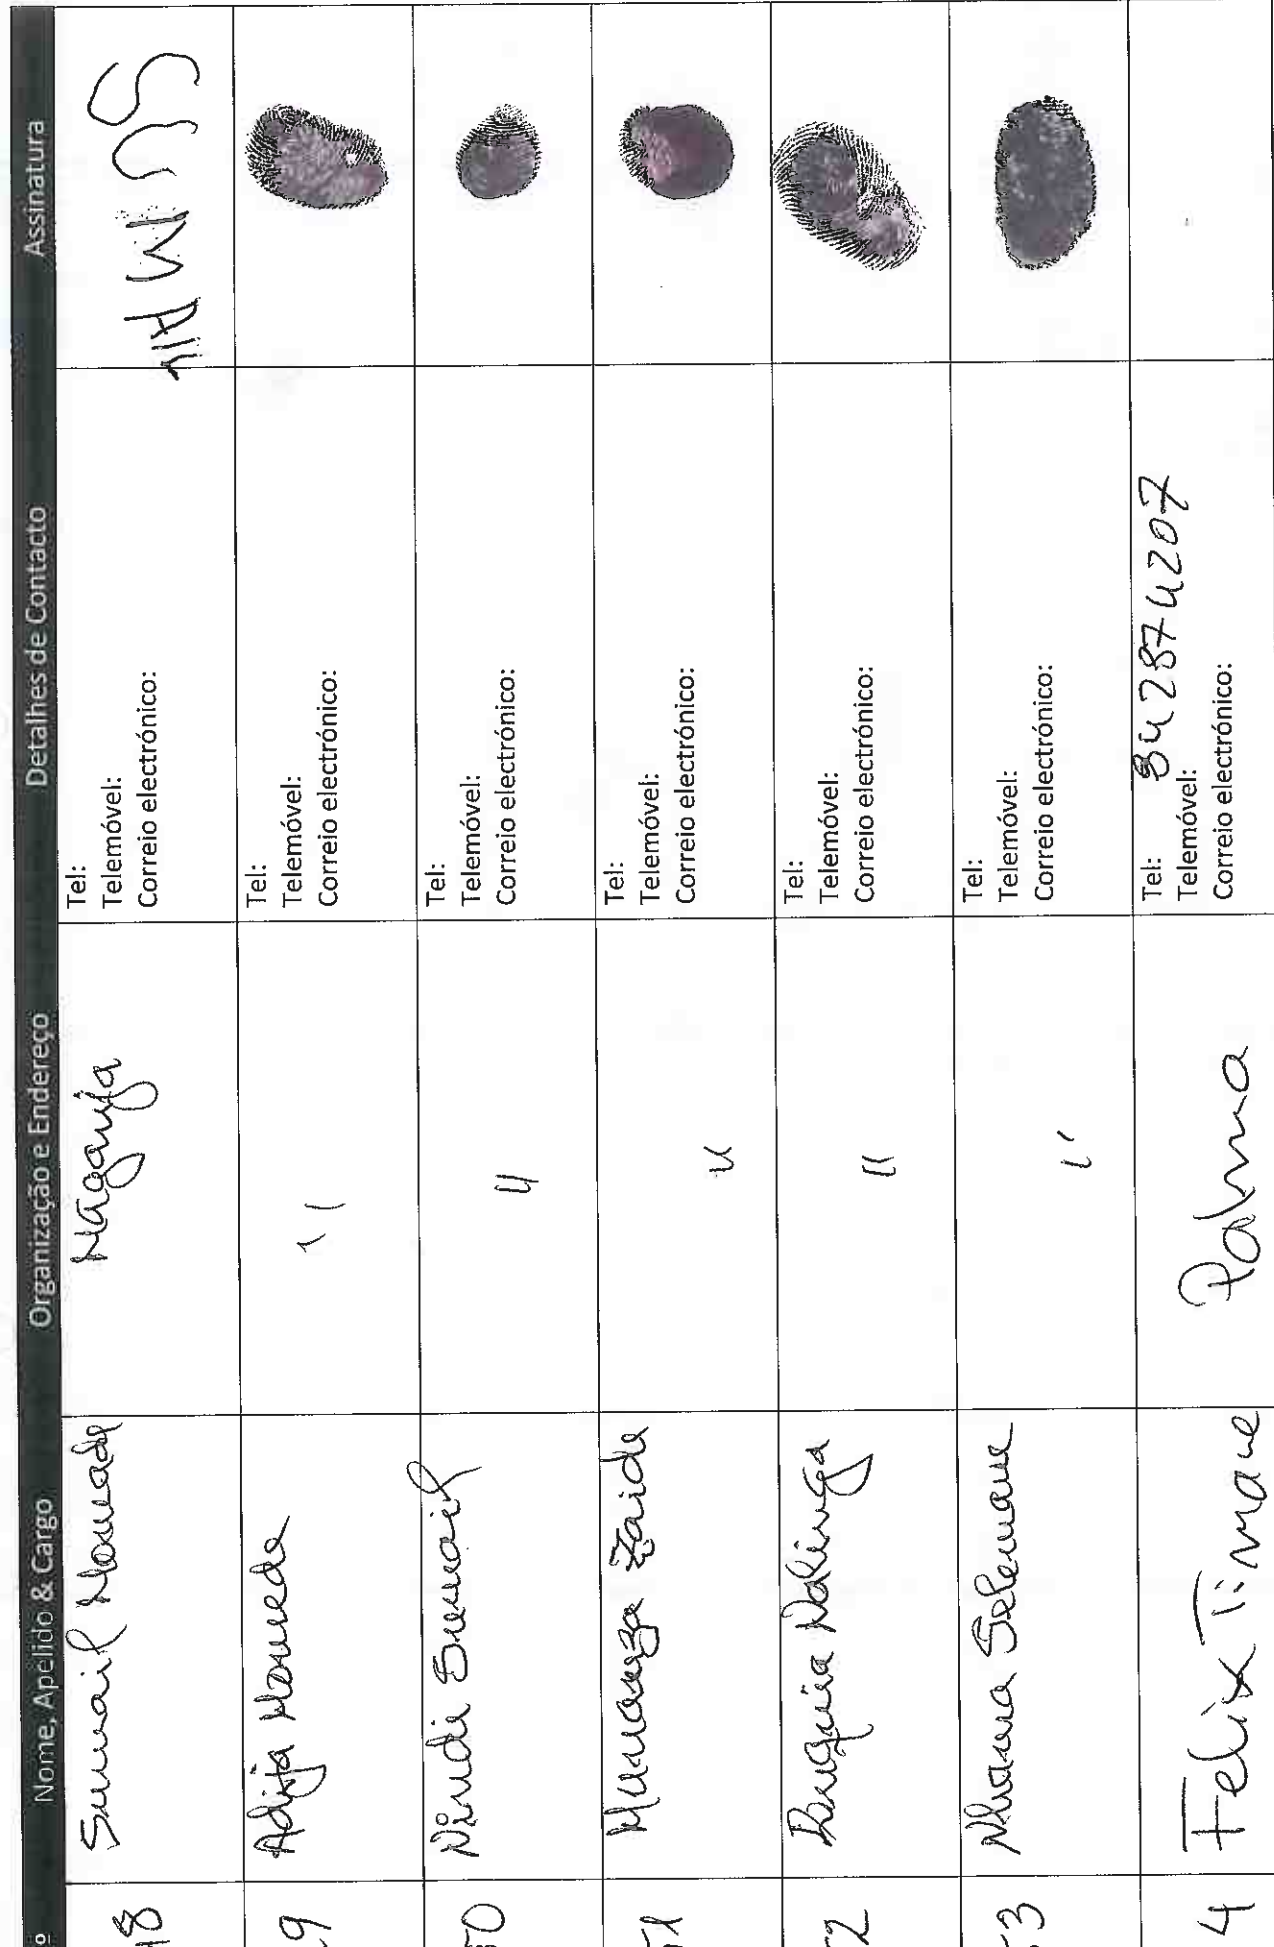 º Nome, Apelido & Cargo Organização e Endereço Detalhes de Contacto Assinatura
48 Sumail Momade Maganja Tel:
Telemóvel:
Correio electrónico:
SUMAIL
9 Adija Momede " Tel:
Telemóvel:
Correio electrónico:
50 Nindi Sumail " Tel:
Telemóvel:
Correio electrónico:
51 Muanza Zaide " Tel:
Telemóvel:
Correio electrónico:
52 " Tel:
Telemóvel:
Correio electrónico:
53 Selemane " Tel:
Telemóvel:
Correio electrónico:
4 Felix Timane Palma Tel: 842874207
Telemóvel:
Correio electrónico: